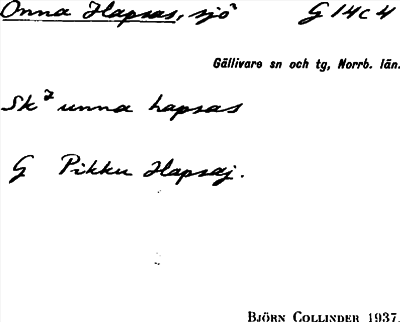 Onna Hapsas, sjö G 14c4
Gällivare sn och tg, Norrb. län.
Sk² unna hapsas
G Pikku Hapsaj.
BJÖRN COLLINDER 1937.